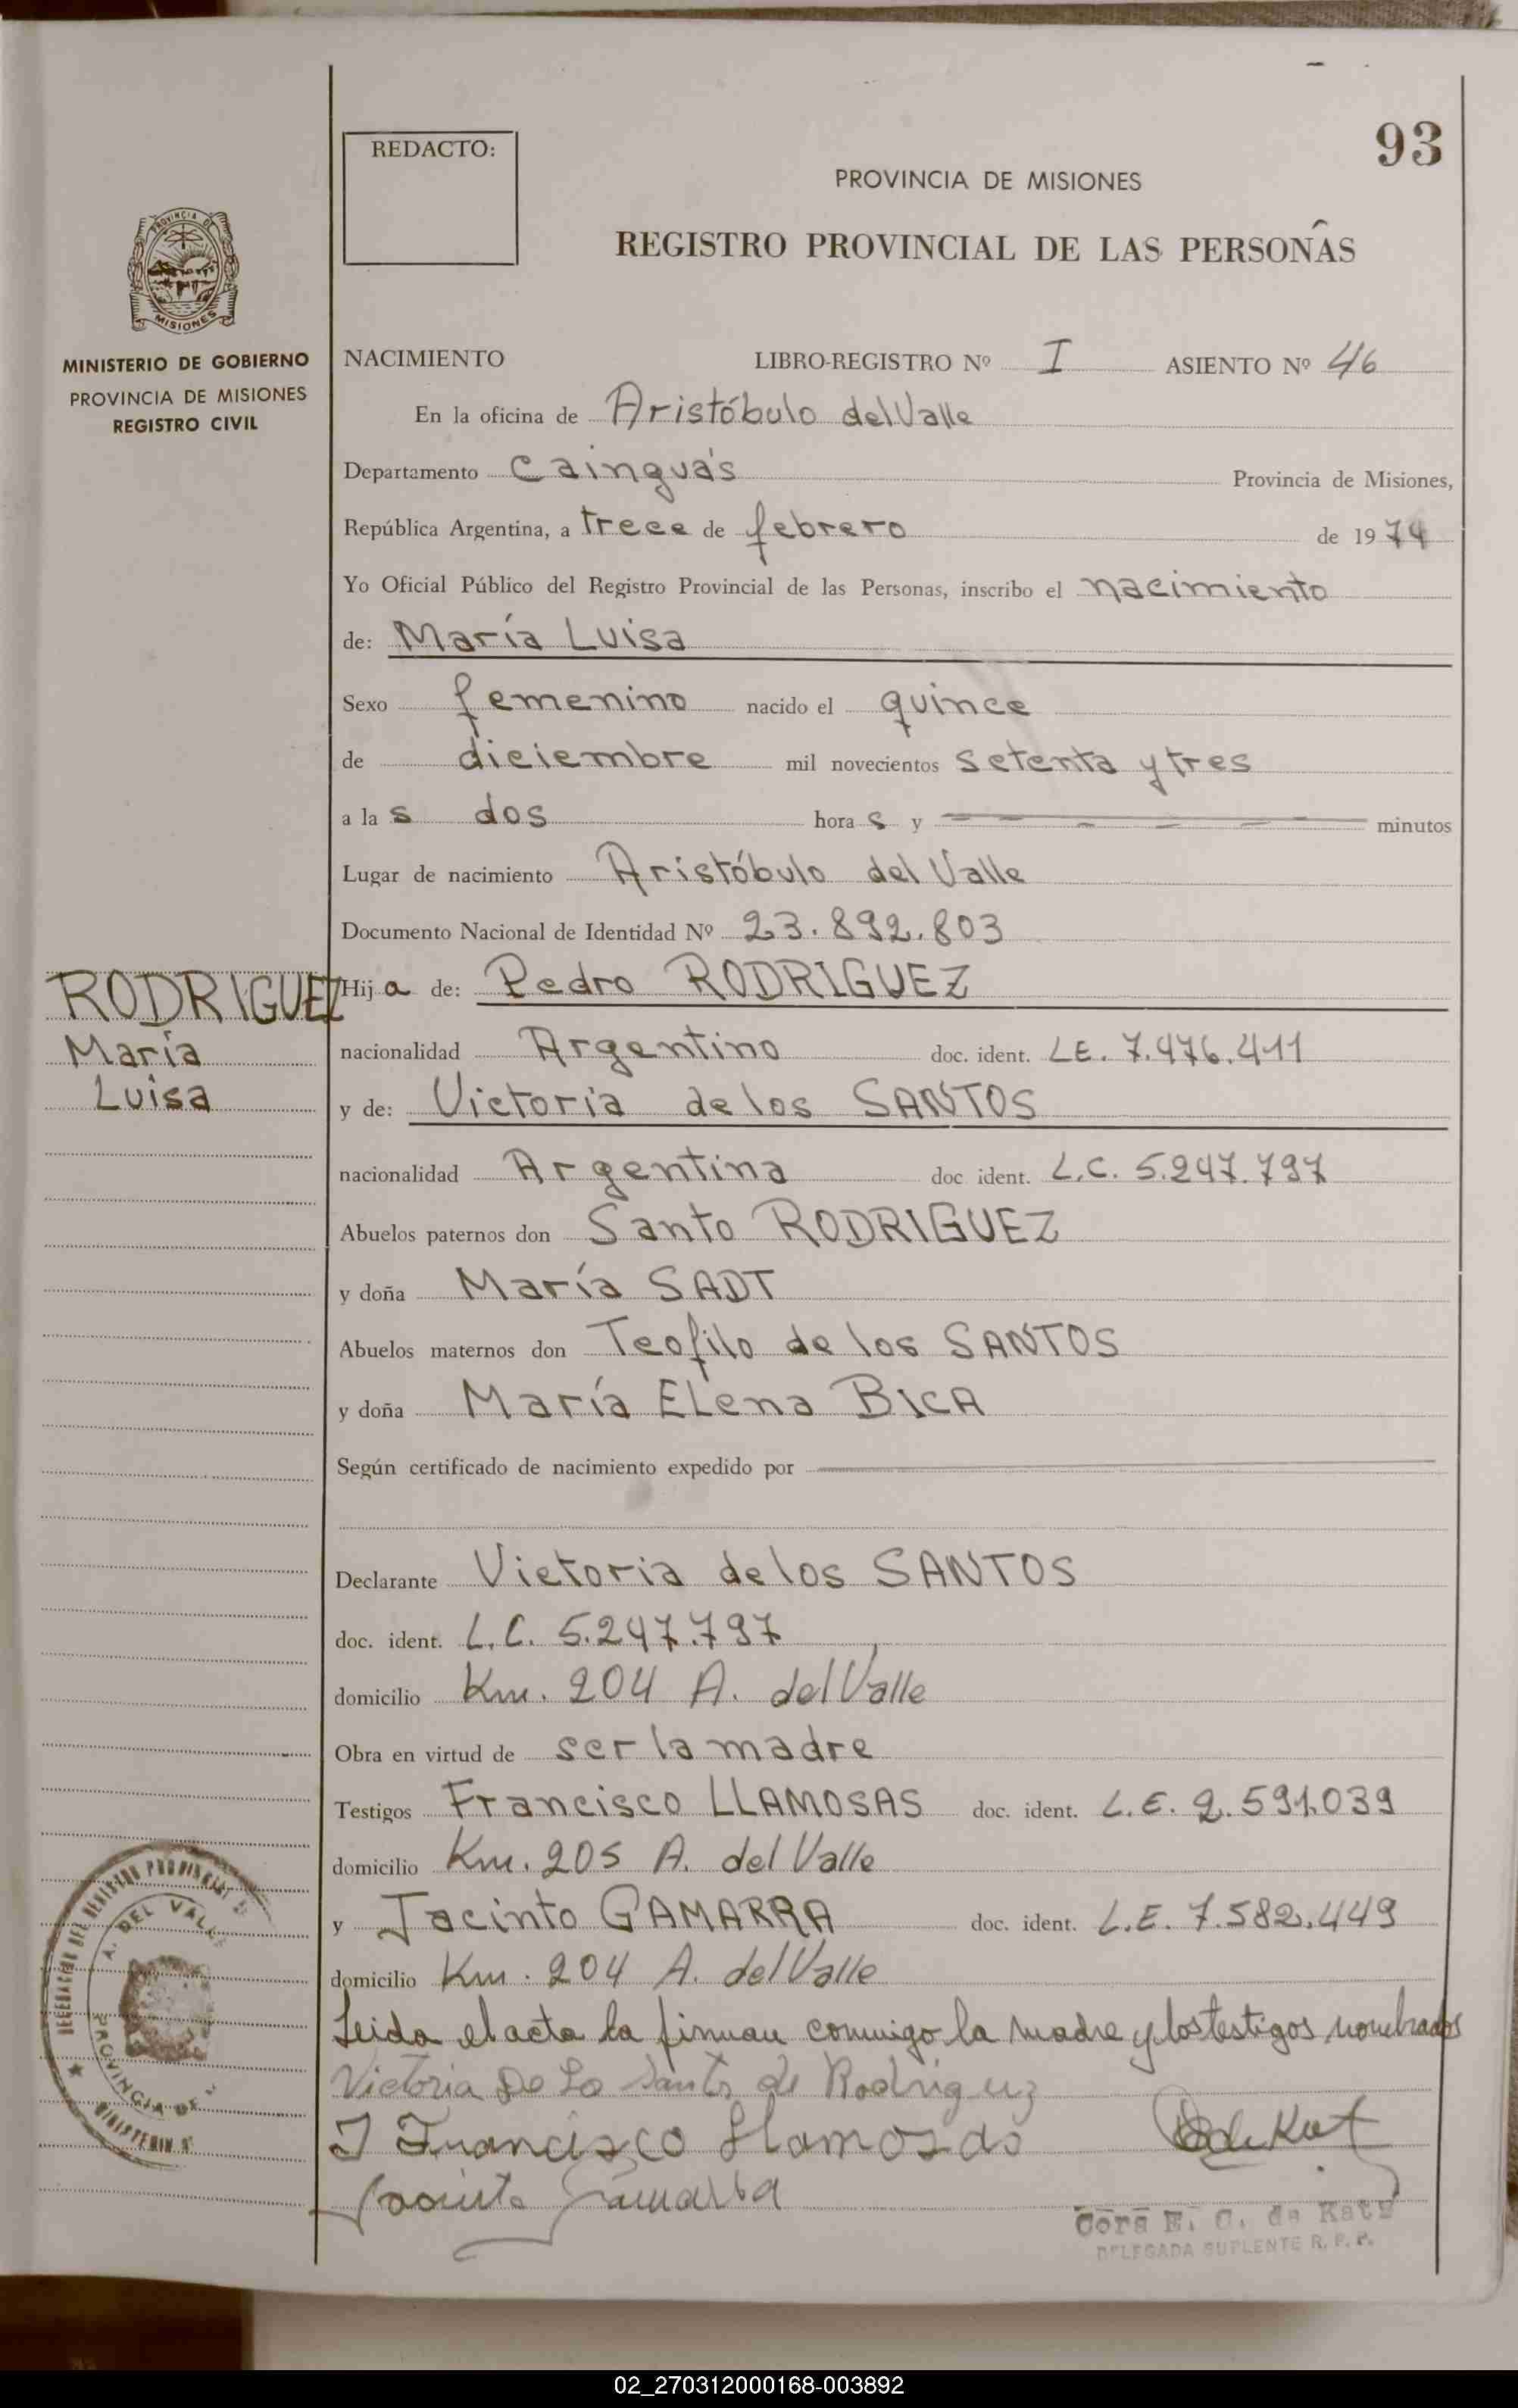 93
REDACTO:
PROVINCIA DE MISIONES
REGISTRO PROVINCIAL DE LAS PERSONAS
PROVINCIA DE
MISIONES
MINISTERIO DE GOBIERNO
PROVINCIA DE MISIONES
REGISTRO CIVIL
NACIMIENTO LIBRO-REGISTRO Nº I ASIENTO Nº 46
En la oficina de Aristóbulo del Valle
Departamento Cainguás Provincia de Misiones,
República Argentina, a trece de febrero de 1974
Yo Oficial Público del Registro Provincial de las Personas, inscribo el nacimiento
de: María Luisa
Sexo femenino nacido el quince
de diciembre mil novecientos setenta y tres
a las dos horas y minutos
Lugar de nacimiento Aristóbulo del Valle
Documento Nacional de Identidad Nº 23.892.803
RODRIGUEZ
María
Luisa
Hija de: Pedro RODRIGUEZ
nacionalidad Argentino doc. ident. LE. 7.476.411
y de: Victoria de los SANTOS
nacionalidad Argentina doc ident. L.C. 5.247.797
Abuelos paternos don Santo RODRIGUEZ
y doña María SADT
Abuelos maternos don Teofilo de los SANTOS
y doña María ELena BICA
Según certificado de nacimiento expedido por
Declarante Victoria de los SANTOS
doc. ident. L.C. 5.247.797
domicilio Km. 204 A. del Valle
Obra en virtud de ser la madre
Testigos Francisco LLAMOSAS doc. ident. L.E. 2.591.039
domicilio Km. 205 A. del Valle
y Jacinto GAMARRA doc. ident. L.E. 7.582.449
domicilio Km. 204 A. del Valle
Leida el acta la firman conmigo la madre y los testigos nombrados
Victoria De Lo Santos de Rodriguez
Francisco Llamosas
Jacinto Gamarra
Cora E. C. de Katz
DELEGADA SUPLENTE R. P. P.
A. DEL VALLE
PROVINCIA DE
02_270312000168-003892